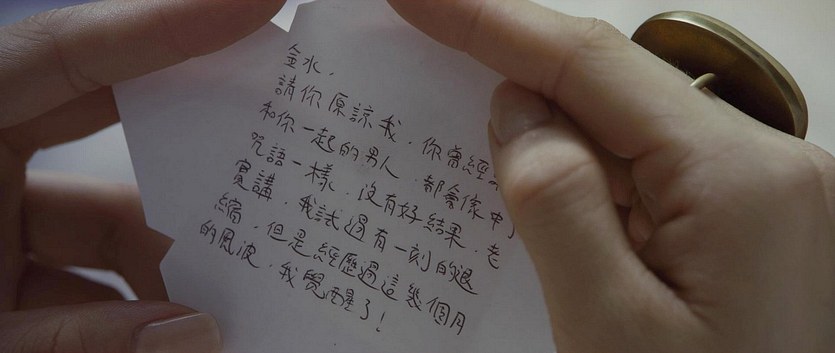 金水，
請你原諒我，你曾經
和你一起的男人，都會像中
咒語一樣，沒有好結果，老
實講，我試過有一刻的退
縮，但是經歷過這幾個月
的風波，我覺醒了！